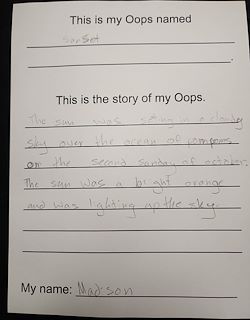 This is my Oops named
sunset
This is the story of my Oops.
The sun was seting in a cloudy
sky over the ocean of pompoms
on the second sunday of october.
The sun was a bright orange
and was lighting up the sky.
My name: Madison